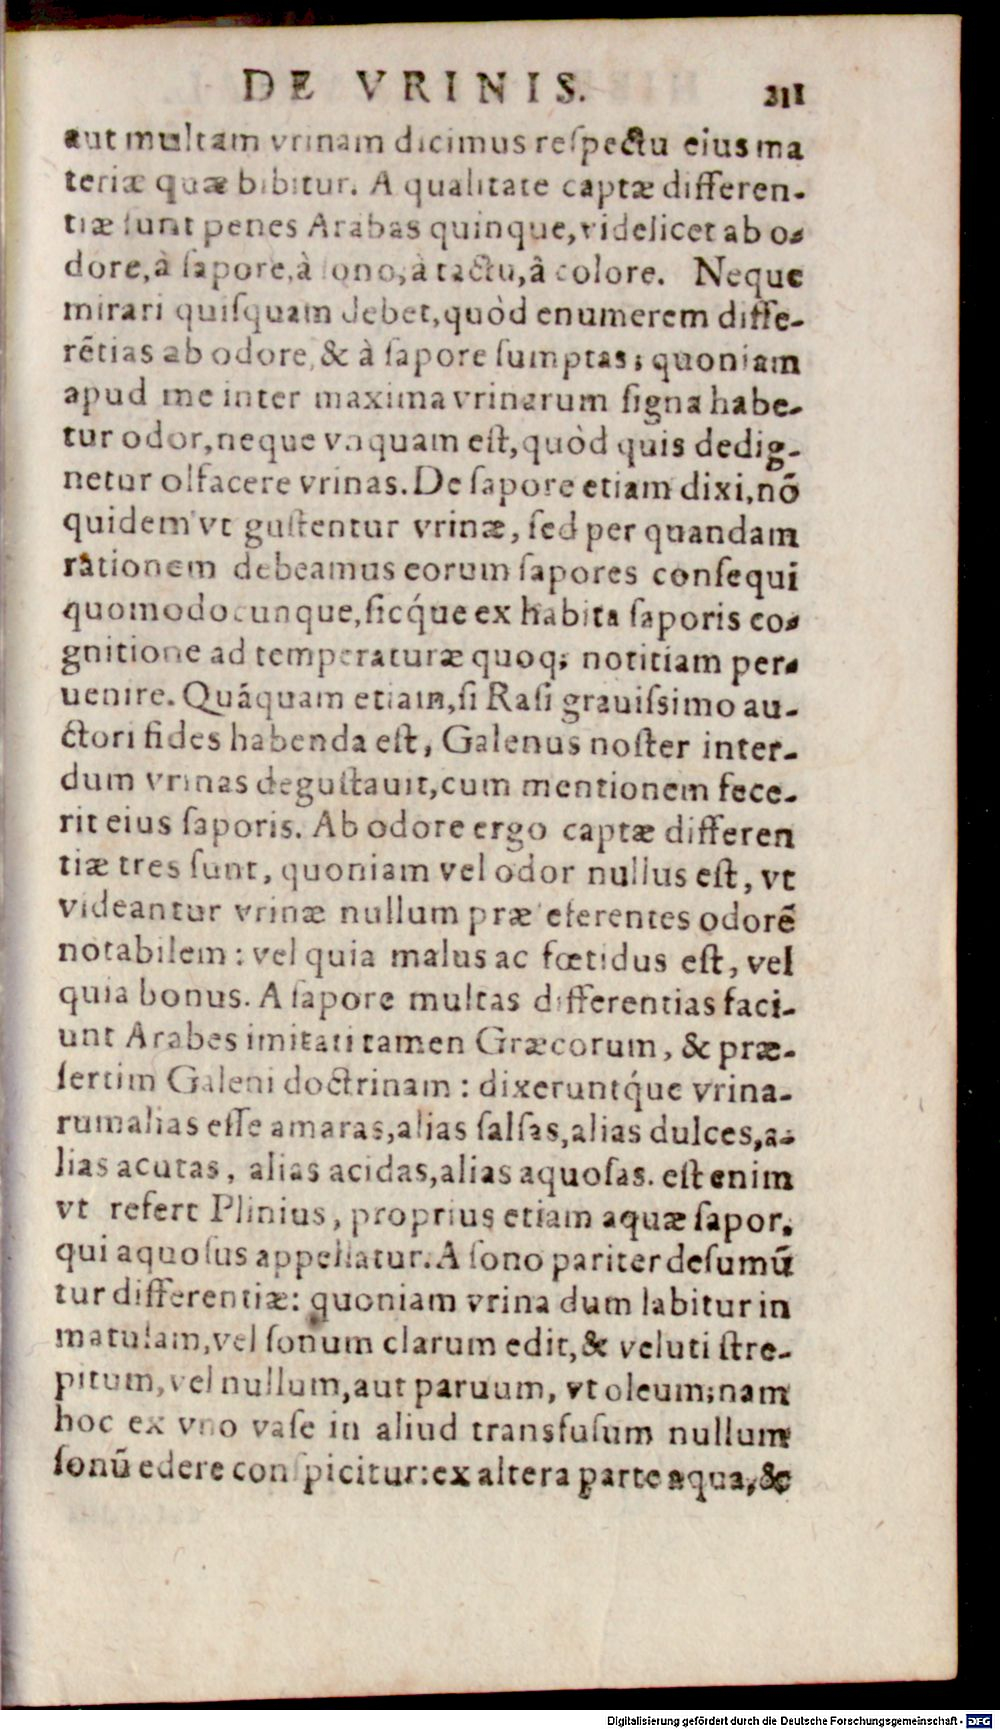 DE VRINIS. 211
aut multam vrinam dicimus reſpectu eius ma
teriæ quæ bibitur. A qualitate captæ differen-
tiæ ſunt penes Arabas quinque, videlicet ab o-
dore, à ſapore, à ſono, à tactu, â colore. Neque
mirari quiſquam debet, quòd enumerem diffe-
rẽtias ab odore, & à ſapore ſumptas; quoniam
apud me inter maxima vrinarum ſigna habe-
tur odor, neque vnquam eſt, quòd quis dedig-
netur olfacere vrinas. De ſapore etiam dixi, nõ
quidem vt guſtentur vrinæ, ſed per quandam
rationem debeamus eorum ſapores conſequi
quomodocunque, ſicq́ue ex habita ſaporis co-
gnitione ad temperaturæ quoq; notitiam per-
uenire. Quãquam etiam, ſi Raſi grauiſsimo au-
ctori fides habenda eſt, Galenus noſter inter-
dum vrinas deguſtauit, cum mentionem fece-
rit eius ſaporis. Ab odore ergo captæ differen
tiæ tres ſunt, quoniam vel odor nullus eſt, vt
videantur vrinæ nullum præ ſe ferentes odorẽ
notabilem: vel quia malus ac fœtidus eſt, vel
quia bonus. A ſapore multas differentias faci-
unt Arabes imitati tamen Græcorum, & præ-
ſertim Galeni doctrinam: dixeruntq́ue vrina-
rum alias eſſe amaras, alias ſalſas, alias dulces, a-
lias acutas, alias acidas, alias aquoſas. eſt enim
vt refert Plinius, proprius etiam aquæ ſapor,
qui aquoſus appellatur. A ſono pariter deſumũ
tur differentiæ: quoniam vrina dum labitur in
matulam, vel ſonum clarum edit, & veluti ſtre-
pitum, vel nullum, aut paruum, vt oleum; nam
hoc ex vno vaſe in aliud transfuſum nullum
ſonũ edere conſpicitur: ex altera parte aqua, &
Digitalisierung gefördert durch die Deutsche Forschungsgemeinschaft - DFG